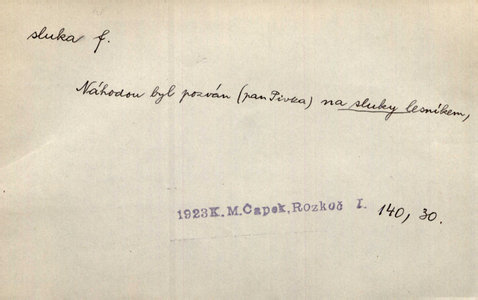 sluka f.
Náhodou byl pozván (pan Pivka) na sluky lesníkem,
1923K.M.Čapek,Rozkoš I. 140, 30.